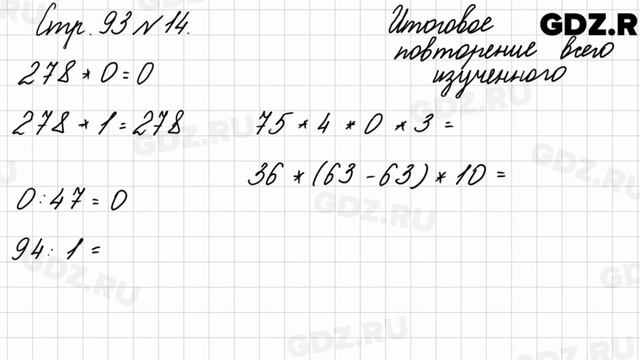 Стр. 93 № 14.
Итоговое
повторение всего
изученного
GDZ.R
278 * 0 = 0
278 * 1 = 278
75 * 4 * 0 * 3 =
36 * (63 - 63) * 10 =
0 : 47 = 0
94 : 1 =
GDZ.RU
GDZ.RU
GDZ.RU
GDZ.RU
GDZ.RU